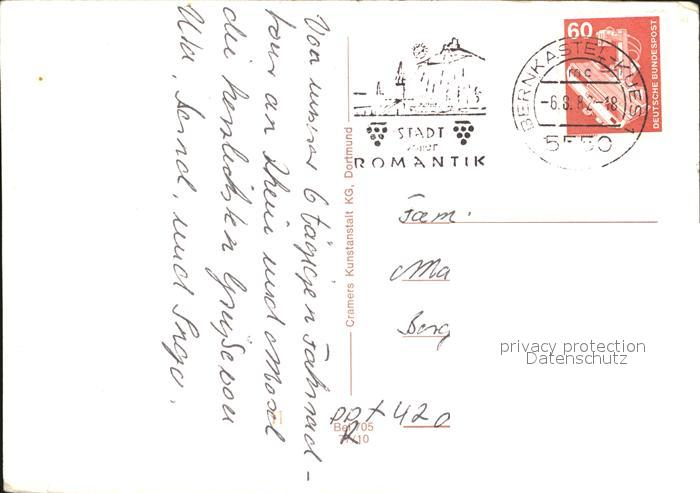 Von unserer 6 tägigen Fahrrad-
tour an Rhein und Mosel
die herzlichsten Grüße von
Uta, Bernd, und Ingo.
Cramers Kunstanstalt KG, Dortmund
STADT
ROMANTIK
BERNKASTEL-KUES 1
mc
-6.8.82-18
5550
60
DEUTSCHE BUNDESPOST
Fam.
Ma
Berg
privacy protection
Datenschutz
420